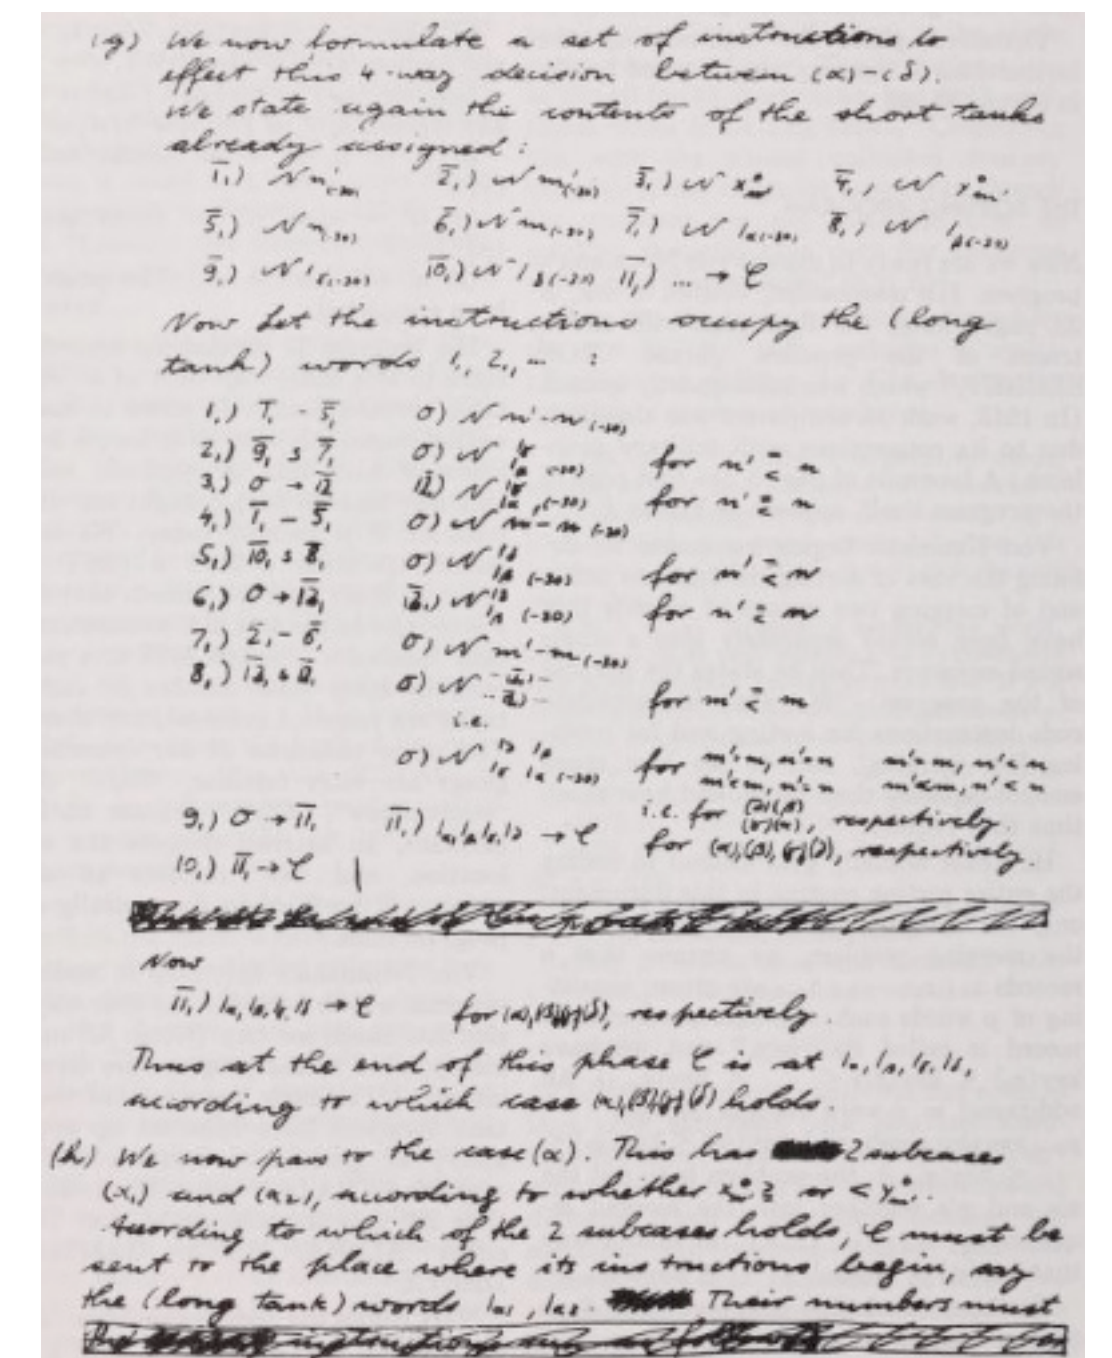 (g) We now formulate a set of instructions to
effect this 4-way decision between (α)-(δ).
We state again the contents of the short tanks
already assigned:
1̄₁) N n'₍₋₃₀₎ 2̄₁) N m'₍₋₃₀₎ 3̄₁) W x⁰ₘ' 4̄₁) W y⁰ₘ'
5̄₁) N n₍₋₃₀₎ 6̄₁) N m₍₋₃₀₎ 7̄₁) N lα₍₋₃₀₎ 8̄₁) N lβ₍₋₃₀₎
9̄₁) N lγ₍₋₃₀₎ 10̄₁) N lδ₍₋₃₀₎ 11̄₁) ... → C
Now let the instructions occupy the (long
tank) words 1₁, 2₁, ... :
1₁) 1̄₁ - 5̄₁ σ) N n'-n₍₋₃₀₎
2₁) 9̄₁ s 7̄₁ σ) N lγ lα ₍₋₃₀₎ for n' ≥ < n
3₁) σ → 12̄ 12̄) N lγ lα ₍₋₃₀₎ for n' ≥ < n
4₁) 1̄₁ - 5̄₁ σ) N ₍₋₃₀₎
5₁) 10̄₁ s 8̄₁ σ) N lδ lβ ₍₋₃₀₎ for n' ≥ < n
6₁) σ → 13̄₁ 13̄₁) N lδ lβ ₍₋₃₀₎ for n' ≥ < n
7₁) 2̄₁ - 6̄₁ σ) N m'-m₍₋₃₀₎
8₁) 13̄₁ s 12̄₁ σ) N for m' ≥ < m
i.e.
σ) N lδ lβ for
lγ lα ₍₋₃₀₎ m'<m, n'<n
i.e. for , respectively.
9₁) σ → 11̄₁ 11̄₁) lα, lβ, lγ, lδ → C for (α),(β),(γ),(δ), respectively.
10₁) 11̄₁ → C
Now
11̄₁) lα, lβ, lγ, lδ → C for (α),(β),(γ),(δ), respectively.
Thus at the end of this phase C is at lα, lβ, lγ, lδ,
according to which case (α),(β),(γ),(δ) holds.
(h) We now pass to the case (α). This has 2 subcases
(α₁) and (α₂), according to whether x⁰ₘ' ≥ or < y⁰ₘ'.
According to which of the 2 subcases holds, C must be
sent to the place where its instructions begin, say
the (long tank) words lα₁, lα₂. Their numbers must